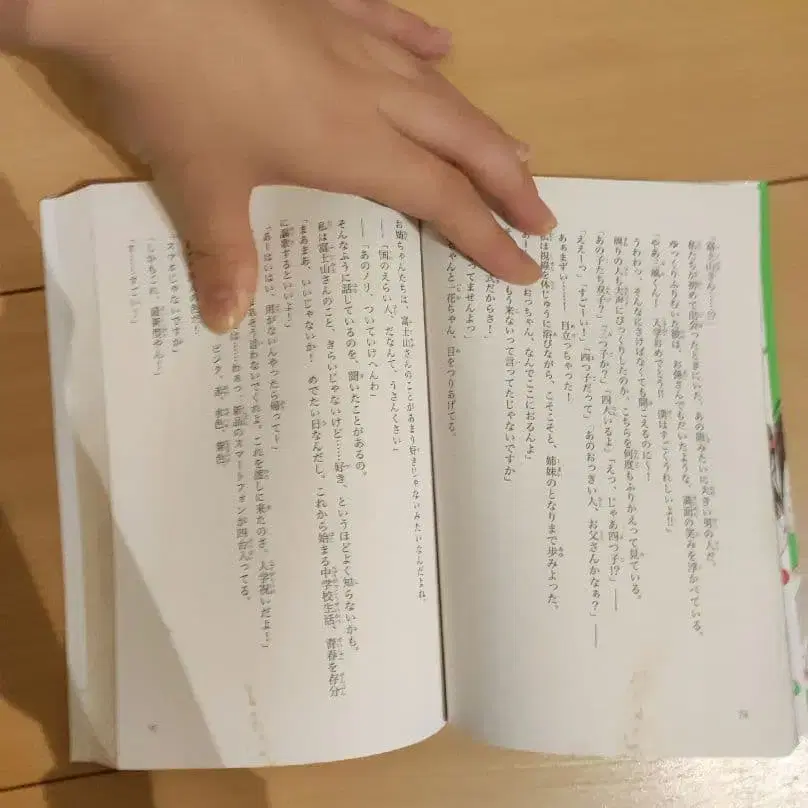 富士山さん!?
私たちが初めて出会ったときにいた、あの熊みたいに大きい男の人だ。
ゆっくりふりむいた彼は、お体さんでもだいたような、満面の笑みを浮かべている。
「やあ、風くん！　入学おめでとう!!　僕はすごくうれしいよ!!」
うわわっ、そんなにさけばなくても聞こえるのに～！
周りの人も大声にびっくりしたのか、こちらを何度もふりかえって見ている。
「あの子たち双子？」「三つ子か？」「四人いるよ」「えっ、じゃあ四つ子!?」
「ええーっ」「すごーい！」「四つ子だって」「あのおっきい人、お父さんかなぁ？」――
あぁまずい……　目立っちゃった！
は視線を体じゅうに浴びながら、こそこそと、姉妹のとなりまで歩みよった。
おっちゃん、なんでここにおるんよ」
もう来ないって言ってたじゃないですか」
式だからさ！」
ってませんよっ」
ちゃんと一花ちゃん、目をつりあげてる。
お姉ちゃんたちは、富士山さんのことがあまり好きじゃないみたいなんだよね。
――「国のえらい人、だなんて、うさんくさい」
――「あのノリ、ついていけへんわ」
そんなふうに話しているのを、聞いたことがあるの。
私は富士山さんのこと、きらいじゃないけど……好き、というほどよく知らないかも。
「まあまあ、いいじゃないか！　めでたい日なんだし。これから始まる中学校生活、青春を存分
に謳歌するといいよ！」
「あーはいはい、用がないんやったら帰ってー」
あそう言わないでくれよ。これを渡しに来たのさ。入学祝いだよ！」
は……わぁっ、新品のスマートフォンが四台入ってる。
ピンク、赤、水色、紫色
スマホじゃないですか
「しかもこれ、最新型やん！」
「す……すごいっ！」